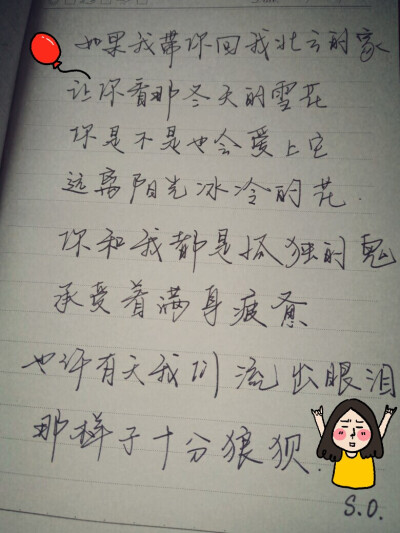 如果我带你回我北方的家
让你看那冬天的雪花
你是不是也会爱上它
远离阳光冰冷的花.
你和我都是孤独的鬼
承受着满身疲惫
也许有天我们流出眼泪
那样子十分狼狈.
S.O.